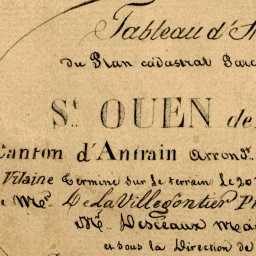 Tableau d'A
du Plan cadastral Parc
St. OUEN de
Canton d'Antrain Arrondt.
Vilaine Terminé sur le terrain le 20
Mr. De La Villegontier Pr
Mr. Desrieux Ma
et sous la Direction de